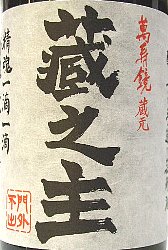 萬寿鏡 蔵元
藏之主
精魂一滴一滴
門外
不出